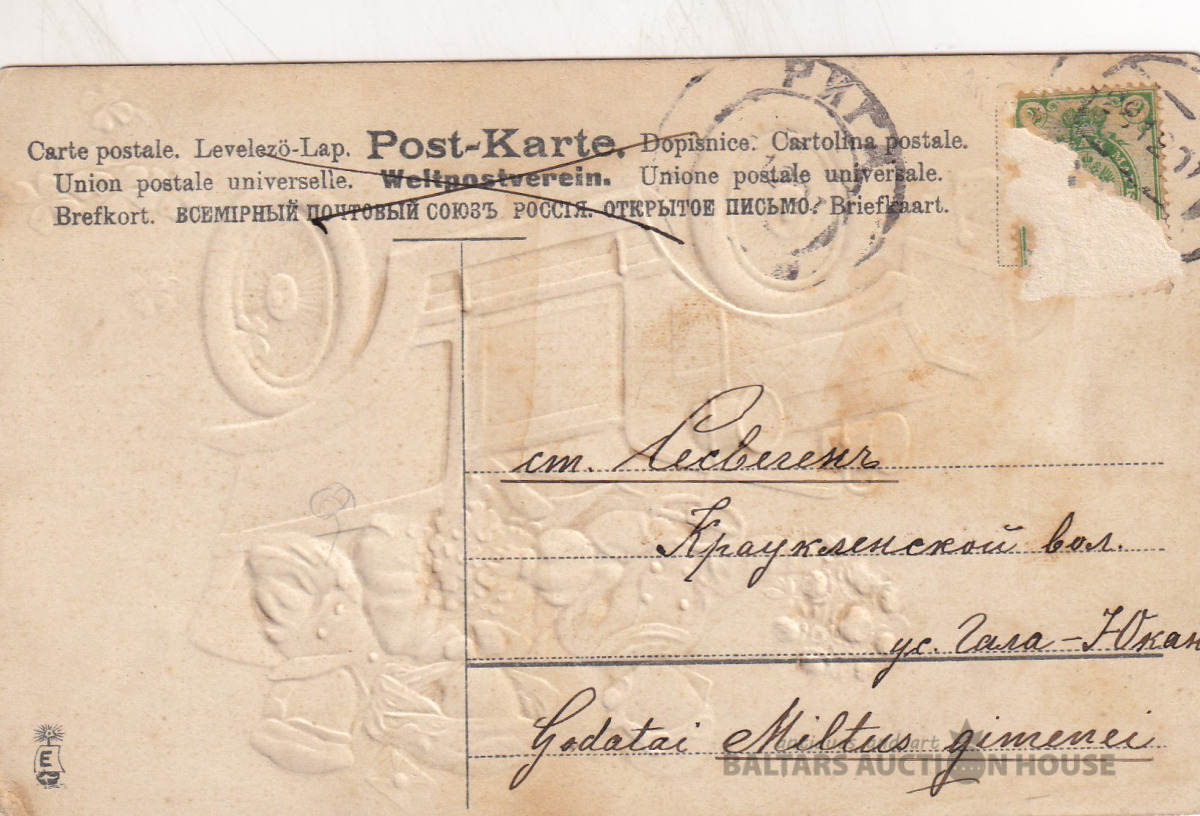 Carte postale. Levelezö-Lap. Post-Karte. Dopisnice. Cartolina postale.
Union postale universelle. Weltpostverein. Unione postale universale.
Brefkort. ВСЕМІРНЫЙ ПОЧТОВЫЙ СОЮЗЪ РОССІЯ. ОТКРЫТОЕ ПИСЬМО. Briefkaart.
РИГА
ст. Сесвегенъ
Крауkленской вол.
ус. Гала-Юкан
Godatai Miltus gimenei
E
BALTARS AUCTION HOUSE